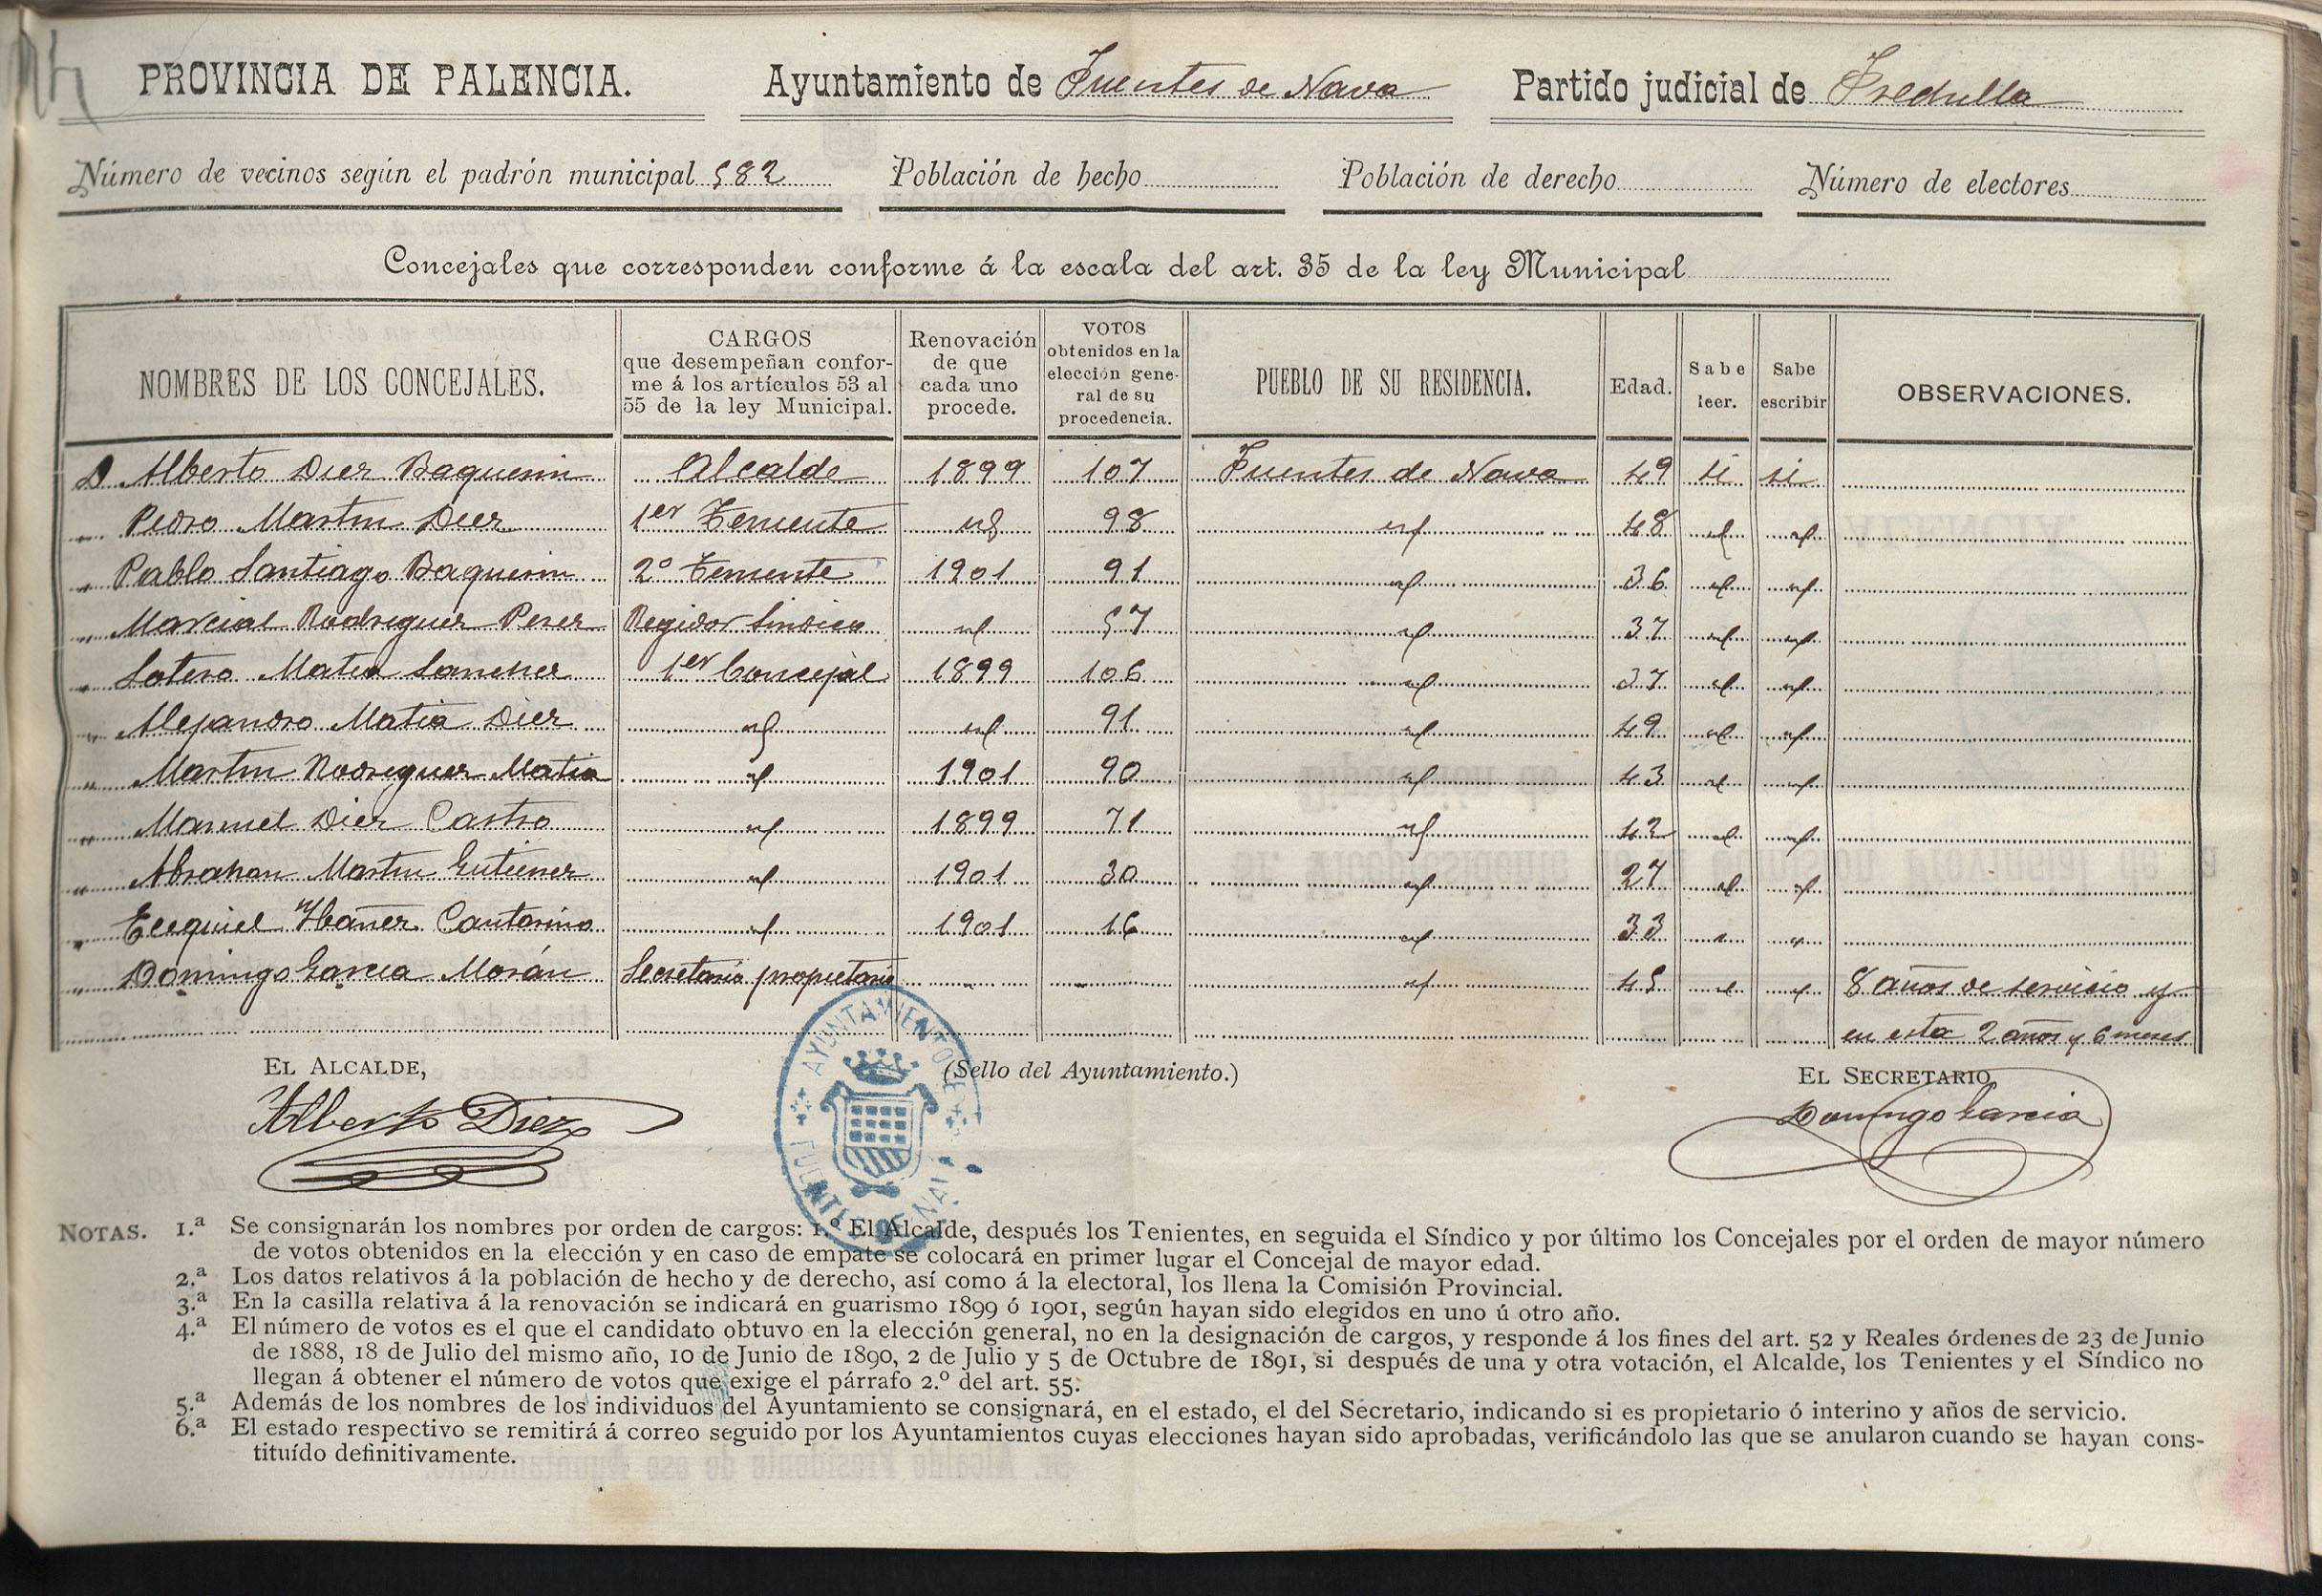 PROVINCIA DE PALENCIA. Ayuntamiento de Fuentes de Nava Partido judicial de Frechilla
Número de vecinos según el padrón municipal 582 Población de hecho Población de derecho Número de electores
Concejales que corresponden conforme á la escala del art. 35 de la ley Municipal
NOMBRES DE LOS CONCEJALES.
CARGOS
que desempeñan confor-
me á los artículos 53 al
55 de la ley Municipal.
Renovación
de que
cada uno
procede.
VOTOS
obtenidos en la
elección gene-
ral de su
procedencia.
PUEBLO DE SU RESIDENCIA.
Edad.
Sabe
leer.
Sabe
escribir
OBSERVACIONES.
D Alberto Diez Baquerin Alcalde 1899 107 Fuentes de Nava 49 si si
" Pedro Martin Diez 1er Teniente id 98 id 48 id id
" Pablo Santiago Baquerin 2º Teniente 1901 91 id 36 id id
" Marcial Rodriguez Perez Regidor Sindico id 57 id 37 id id
" Sotero Matia Sanchez 1er Concejal 1899 106 id 37 id id
" Alejandro Matia Diez id id 91 id 49 id id
" Martin Rodriguez Matia id 1901 90 id 43 id id
" Manuel Diez Castro id 1899 71 id 42 id id
" Abrahan Martin Gutierrez id 1901 30 id 27 id id
" Ecequiel Ybañez Cantorino id 1901 16 id 33 " "
" Domingo Garcia Morán Secretario propietario - - id 45 id id 8 años de servicio y
en esta 2 años y 6 meses
EL ALCALDE, (Sello del Ayuntamiento.) EL SECRETARIO,
Alberto Diez Domingo Garcia
AYUNTAMIENTO DE FUENTES DE NAVA
NOTAS. 1.ª Se consignarán los nombres por orden de cargos: 1.º El Alcalde, después los Tenientes, en seguida el Síndico y por último los Concejales por el orden de mayor número
de votos obtenidos en la elección y en caso de empate se colocará en primer lugar el Concejal de mayor edad.
2.ª Los datos relativos á la población de hecho y de derecho, así como á la electoral, los llena la Comisión Provincial.
3.ª En la casilla relativa á la renovación se indicará en guarismo 1899 ó 1901, según hayan sido elegidos en uno ú otro año.
4.ª El número de votos es el que el candidato obtuvo en la elección general, no en la designación de cargos, y responde á los fines del art. 52 y Reales órdenes de 23 de Junio
de 1888, 18 de Julio del mismo año, 10 de Junio de 1890, 2 de Julio y 5 de Octubre de 1891, si después de una y otra votación, el Alcalde, los Tenientes y el Síndico no
llegan á obtener el número de votos que exige el párrafo 2.º del art. 55.
5.ª Además de los nombres de los individuos del Ayuntamiento se consignará, en el estado, el del Secretario, indicando si es propietario ó interino y años de servicio.
6.ª El estado respectivo se remitirá á correo seguido por los Ayuntamientos cuyas elecciones hayan sido aprobadas, verificándolo las que se anularon cuando se hayan cons-
tituído definitivamente.